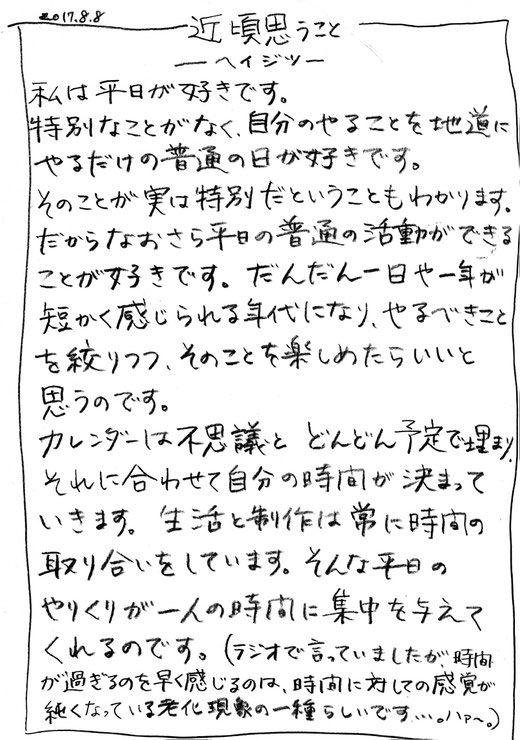 2017.8.8
近頃思うこと
ーヘイジツー
私は平日が好きです。
特別なことがなく、自分のやることを地道に
やるだけの普通の日が好きです。
そのことが実は特別だということもわかります。
だからなおさら平日の普通の活動ができる
ことが好きです。だんだん一日や一年が
短かく感じられる年代になり、やるべきこと
を絞りつつ、そのことを楽しめたらいいと
思うのです。
カレンダーは不思議と どんどん予定で埋まり、
それに合わせて自分の時間が決まって
いきます。生活と制作は常に時間の
取り合いをしています。そんな平日の
やりくりが一人の時間に集中を与えて
くれるのです。(ラジオで言っていましたが、時間
が過ぎるのを早く感じるのは、時間に対しての感覚が
鈍くなっている老化現象の一種らしいです…。ハァ〜。)